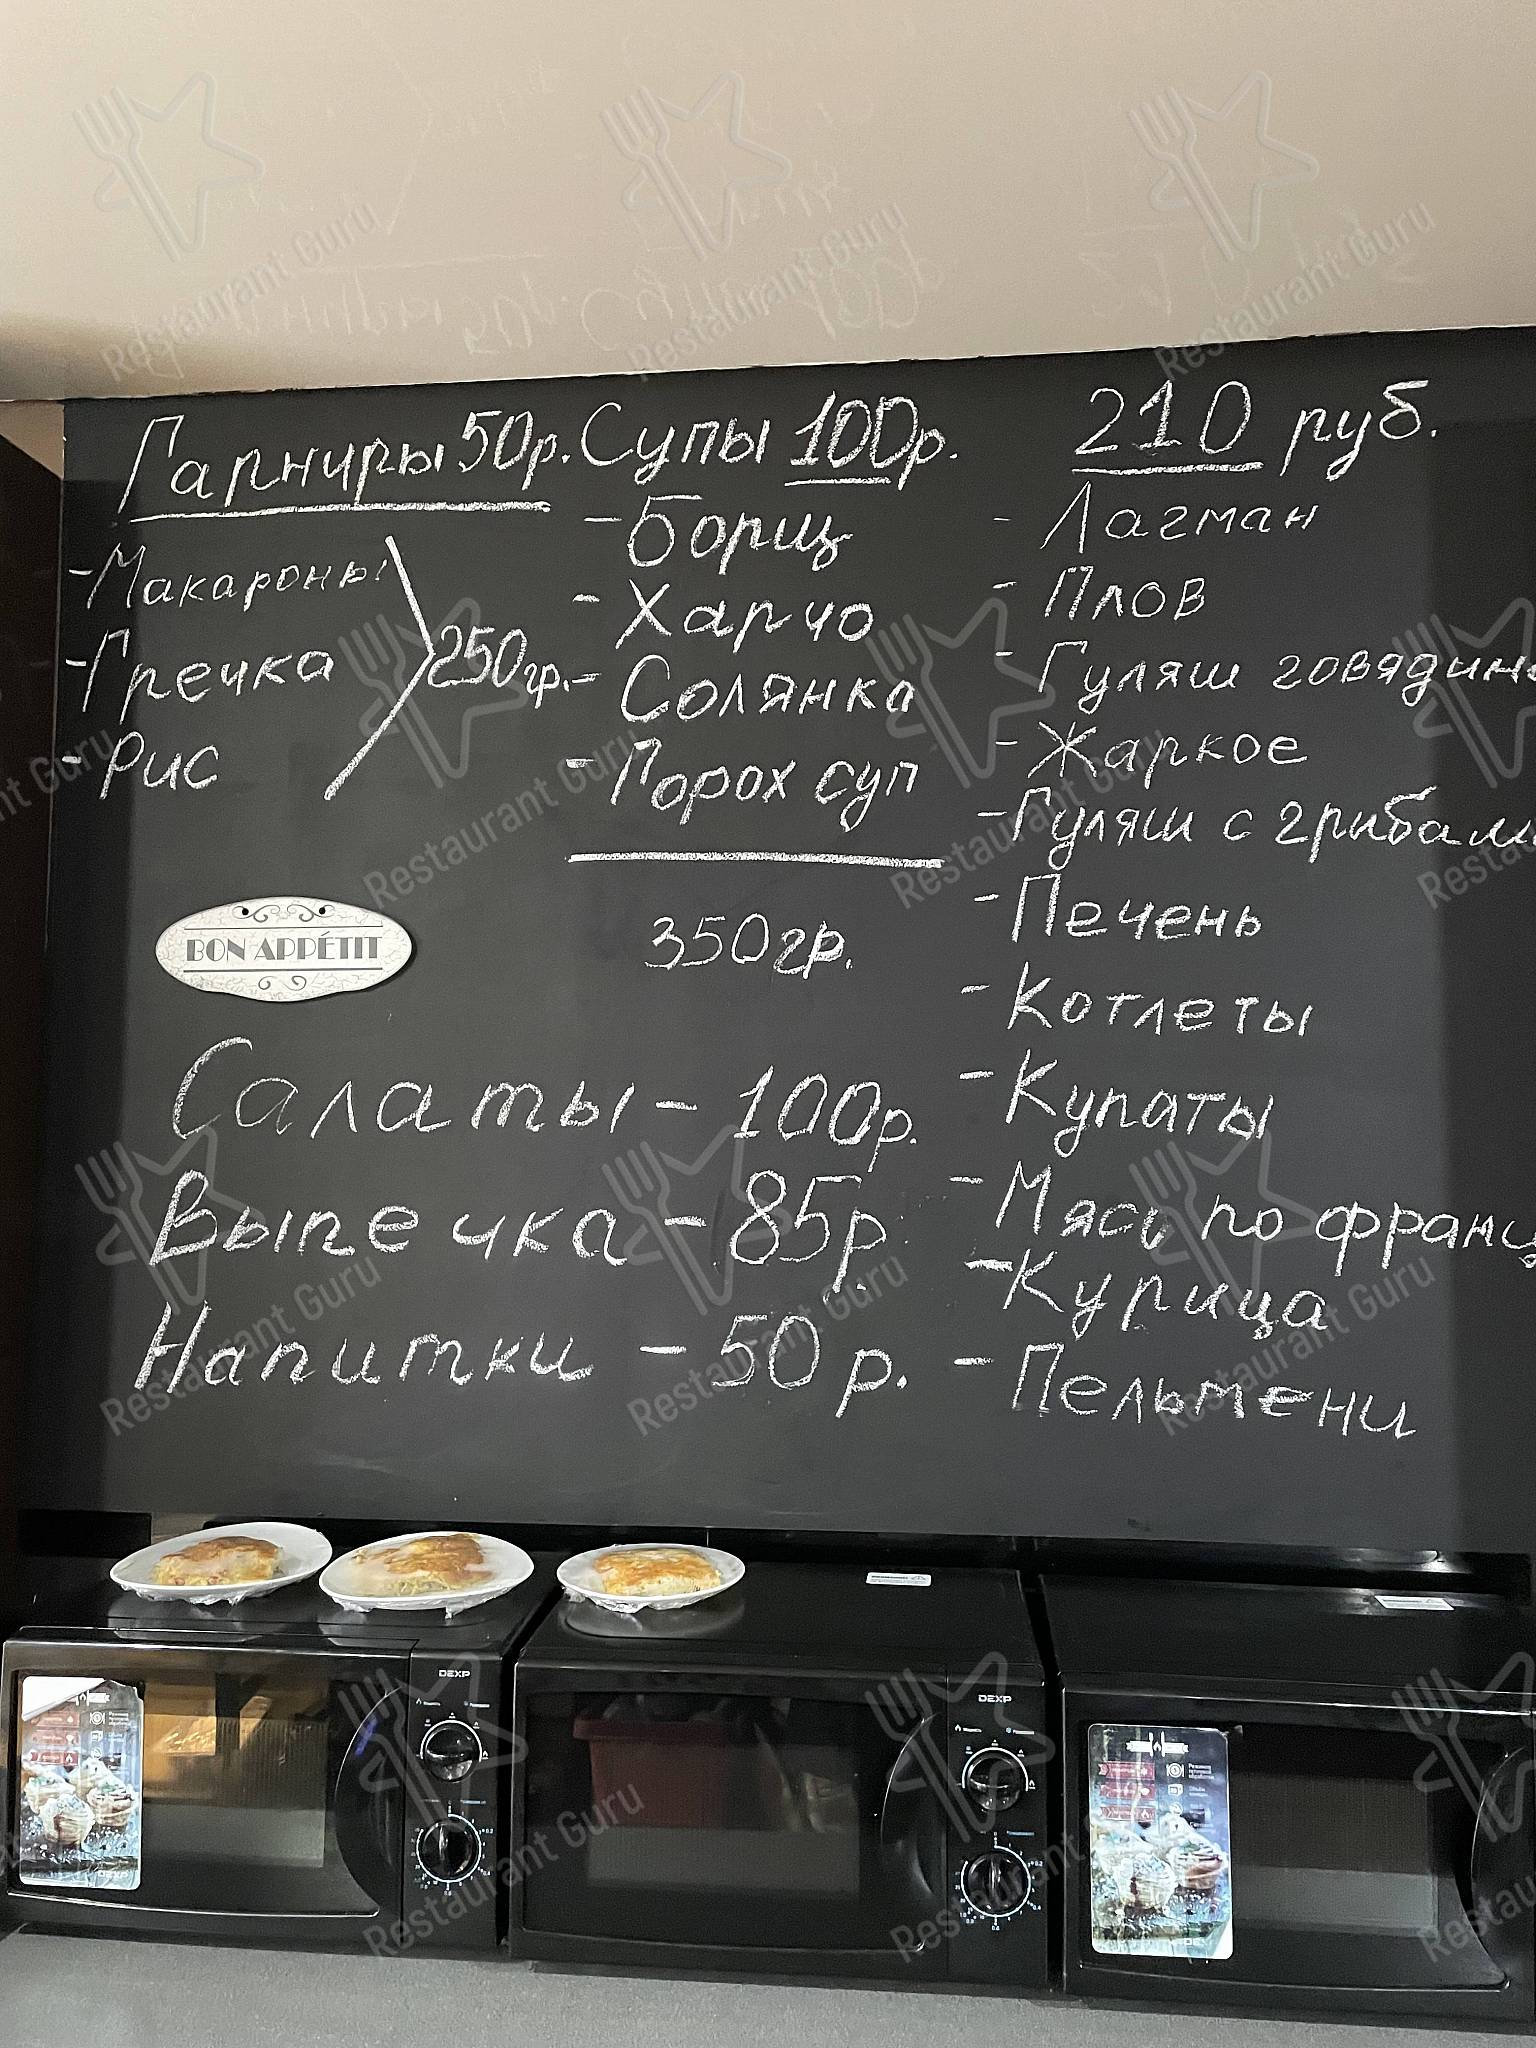 Гарниры 50р.
- Макароны
- Гречка
- Рис
250гр.
Супы 100р.
- Борщ
- Харчо
- Солянка
- Горох суп
350гр.
210 руб.
- Лагман
- Плов
- Гуляш говядина
- Жаркое
- Гуляш с грибами
- Печень
- Котлеты
- Купаты
- Мясо по франц
- Курица
- Пельмени
BON APPÉTIT
Салаты - 100р.
Выпечка - 85р
Напитки - 50р.
DEXP
DEXP
Restaurant Guru